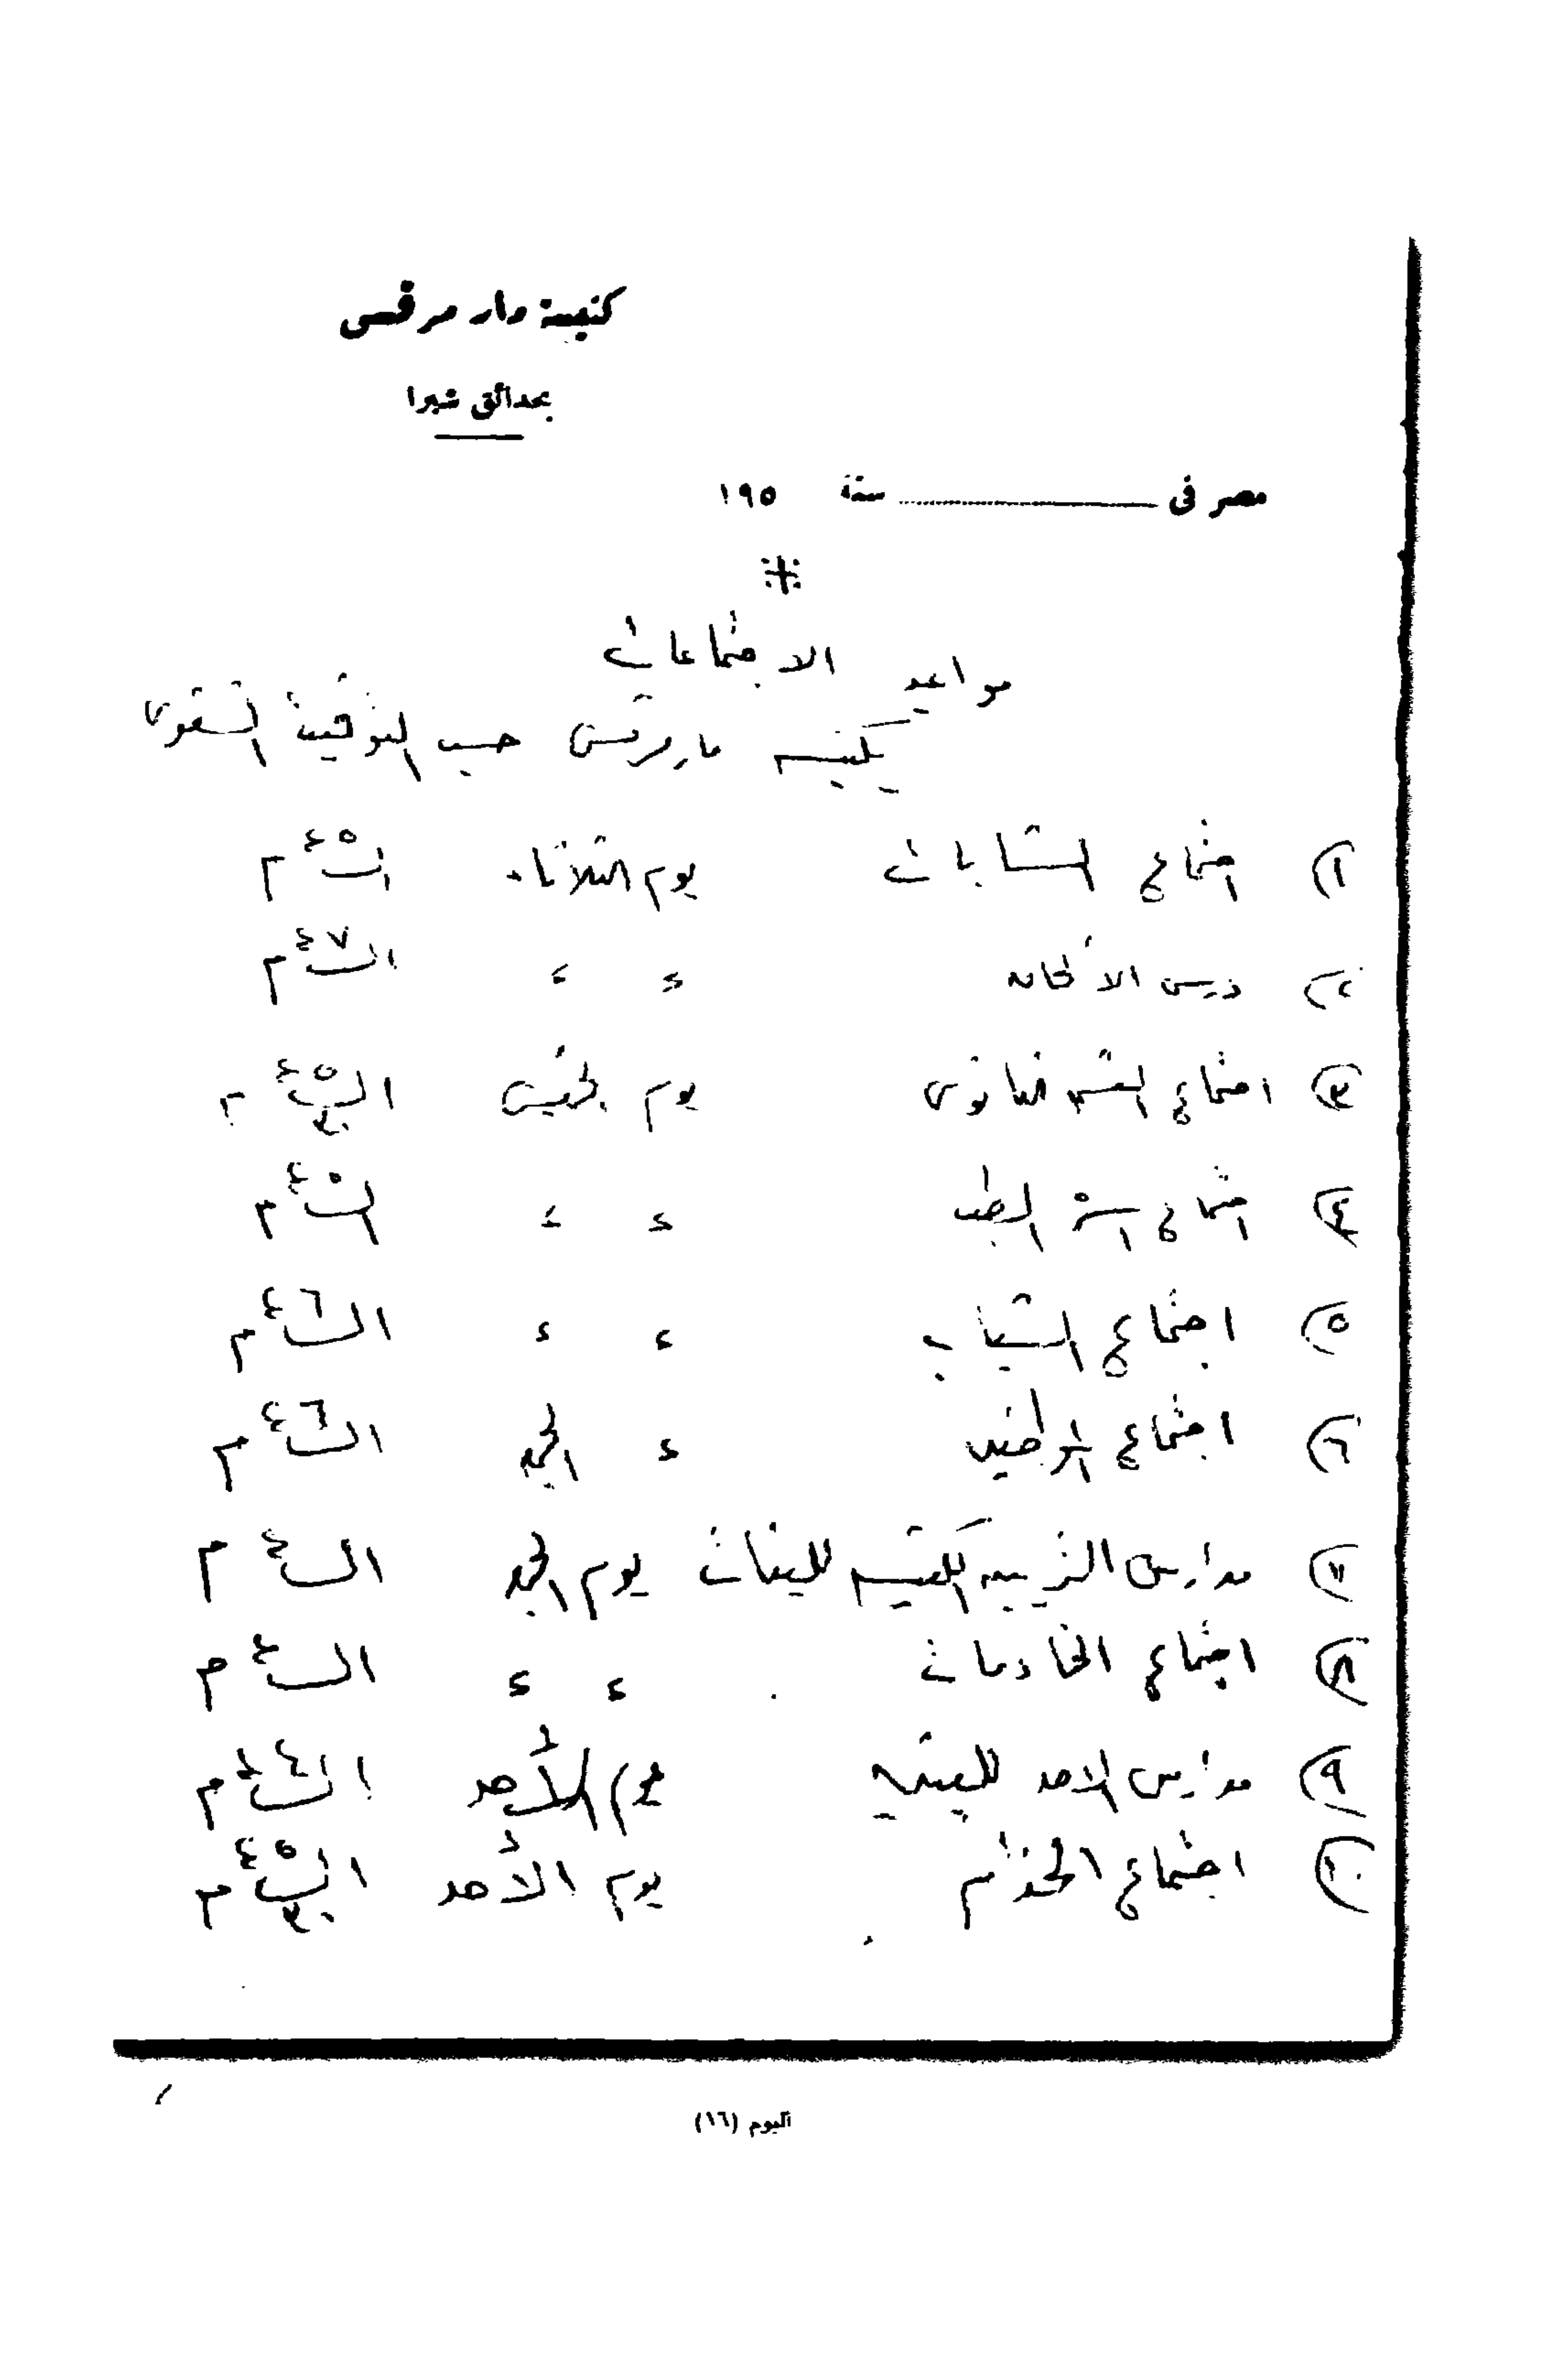 كنيسة مار مرقس
بحدائق شبرا
مصر فى سنة ١٩٥
مواعيد الاجتماعات
بكنيسة مار مرقس حسب التوقيت الشتوى
١) اجتماع الشابات يوم الثلاثاء الساعة ٥ م
٢) درس الألحان " " الساعة ٧ م
٣) اجتماع القسم الثانوى يوم الخميس الساعة ٥ م
٤) اجتماع اسرة الطب " " الساعة ٥ م
٥) اجتماع الشباب " " الساعة ٦ م
٦) اجتماع الموظفين " الجمعة الساعة ٦ م
٧) مدارس التربية الكنسية للبنات يوم الجمعة الساعة م
٨) اجتماع الخادمات " " الساعة م
٩) مدارس الاحد للبنين يوم الأحد الساعة ٤ م
١٠) اجتماع الخدام يوم الأحد الساعة ٥ م
البوم (١٦)